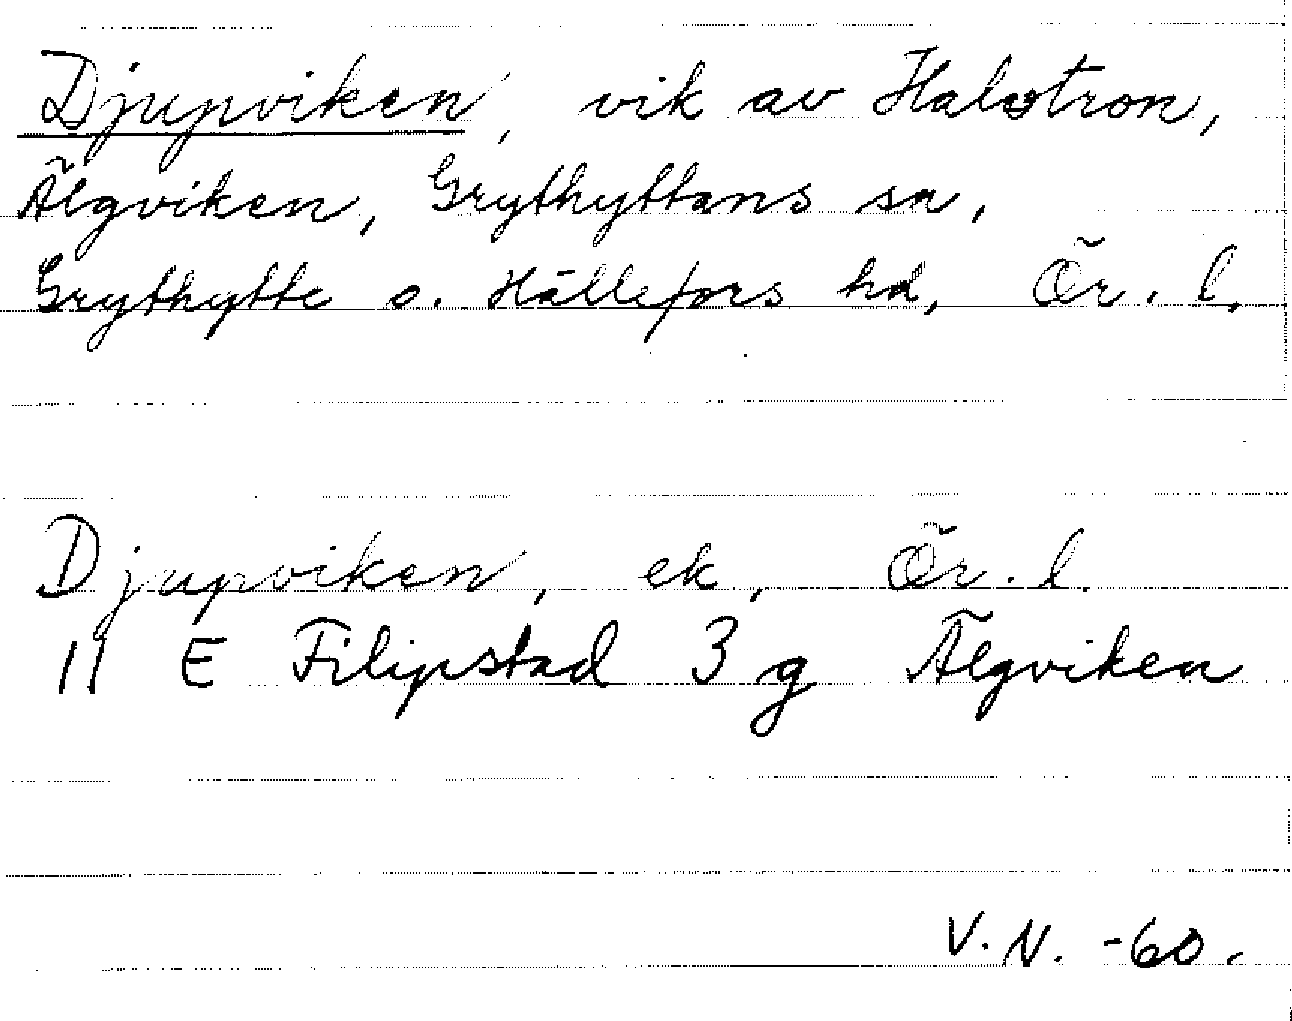 Djupviken, vik av Halvtron,
Älgviken, Grythyttans sn,
Grythytte o. Hällefors hd, Ör. l.
Djupviken, ek, Ör. l.
11 E Filipstad 3 g Älgviken
V. N. -60.